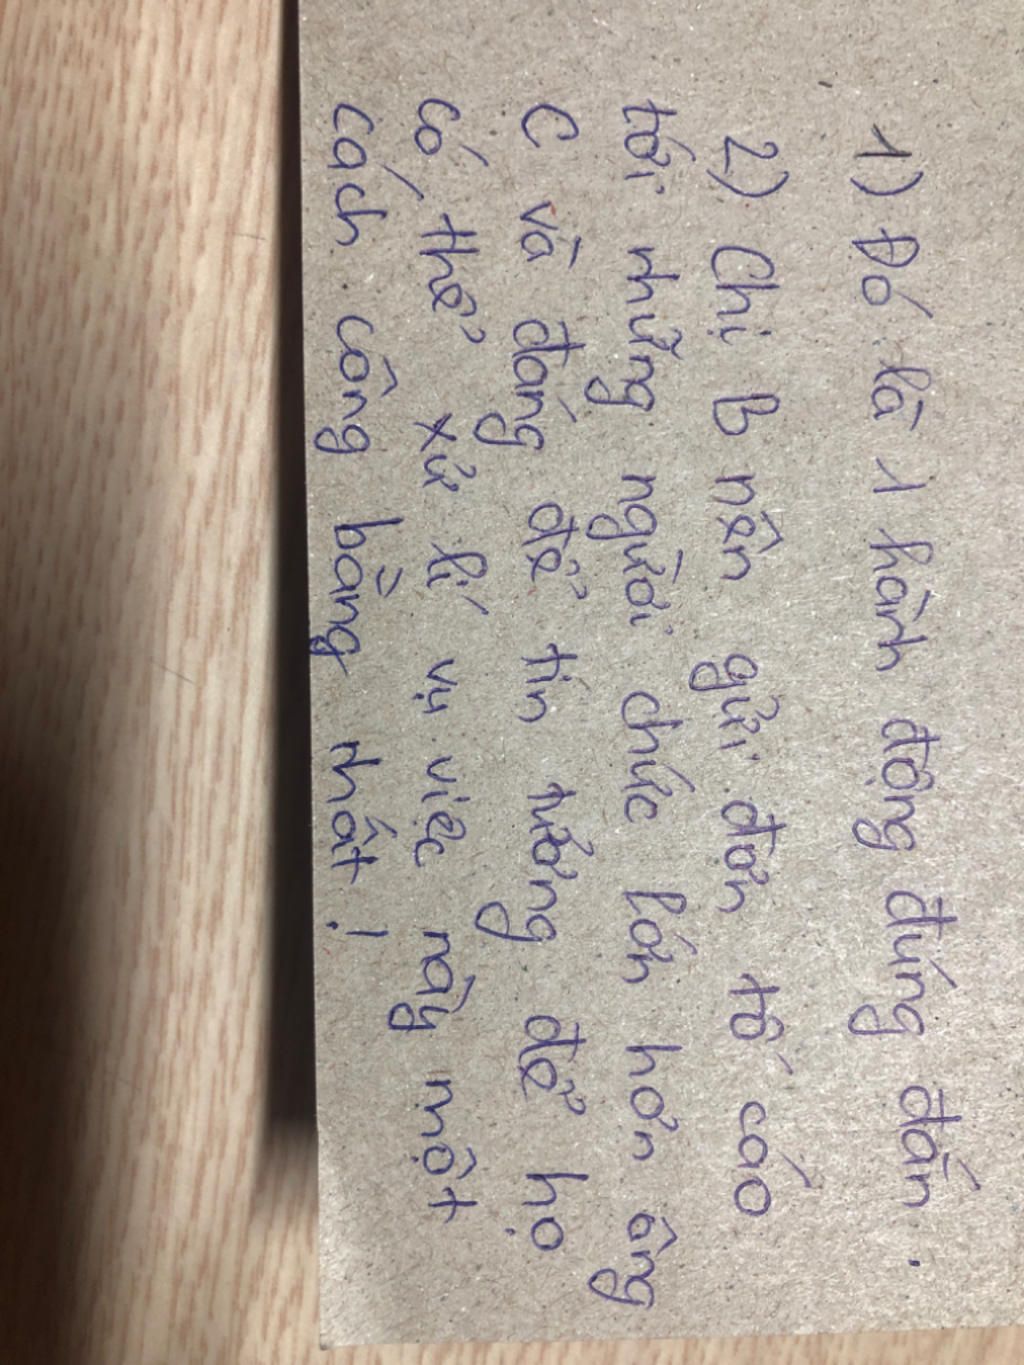 1) Đó là 1 hành động đúng đắn.
2) Chị B nên gửi đơn tố cáo
tới những người chức lớn hơn ông
C và đáng để tin tưởng để họ
có thể xử lí vụ việc này một
cách công bằng nhất!